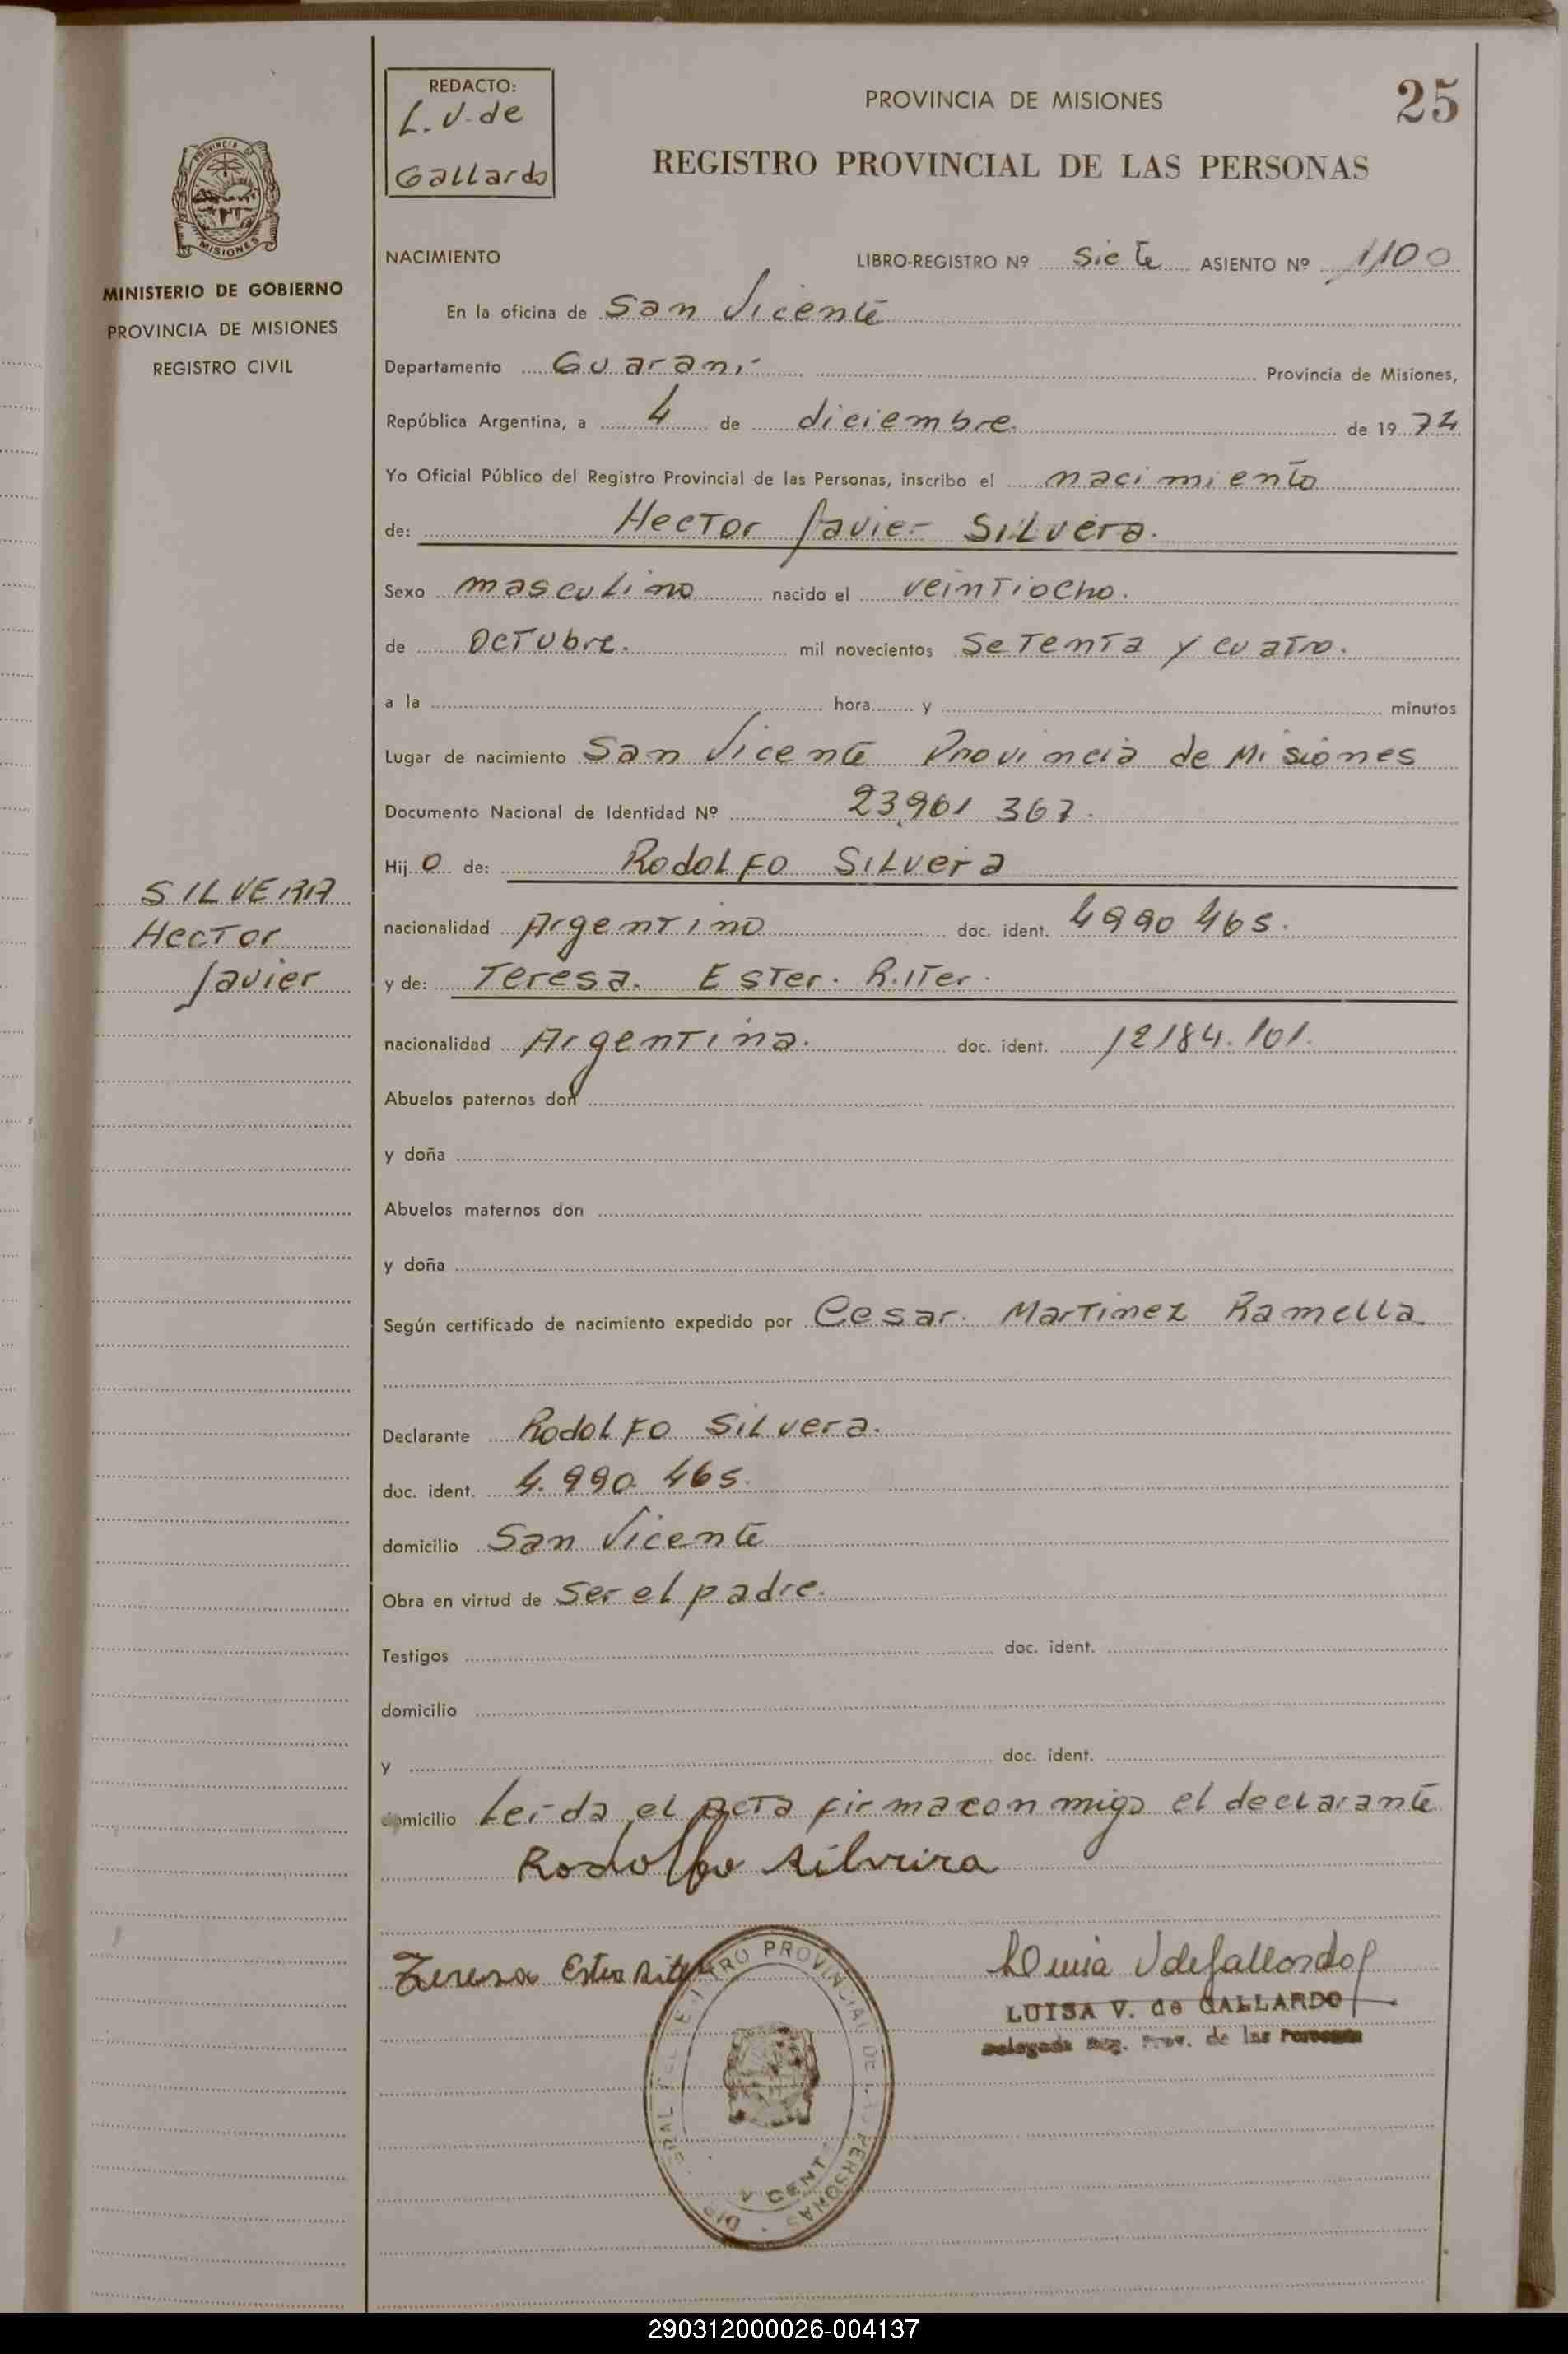 25
REDACTO:
L. V. de
Gallardo
PROVINCIA DE MISIONES
REGISTRO PROVINCIAL DE LAS PERSONAS
PROVINCIA DE
MISIONES
MINISTERIO DE GOBIERNO
PROVINCIA DE MISIONES
REGISTRO CIVIL
NACIMIENTO LIBRO-REGISTRO Nº siete ASIENTO Nº 1100
En la oficina de San Vicente
Departamento Guaraní Provincia de Misiones,
República Argentina, a 4 de diciembre. de 1974
Yo Oficial Público del Registro Provincial de las Personas, inscribo el nacimiento
de: Hector Javier SILvera.
Sexo masculino nacido el veintiocho.
de octubre. mil novecientos setenta y cuatro.
a la hora y minutos
Lugar de nacimiento San Vicente Provincia de Misiones
Documento Nacional de Identidad Nº 23.961 367.
Hijo de: Rodolfo SILvera
nacionalidad Argentino doc. ident. 4990 465.
y de: Teresa. Ester. Riter.
nacionalidad Argentina. doc. ident. 12184.101.
SILVERA
Hector
Javier
Abuelos paternos don
y doña
Abuelos maternos don
y doña
Según certificado de nacimiento expedido por Cesar. Martinez Ramella.
Declarante Rodolfo Silvera.
doc. ident. 4.990. 465.
domicilio San Vicente
Obra en virtud de ser el padre.
Testigos doc. ident.
domicilio
y doc. ident.
domicilio Leída el acta firma conmigo el declarante
Rodolfo Silveira
Teresa Ester Riter
Luisa V de Gallardo
LUISA V. de GALLARDO
Delegada Reg. Prov. de las Personas
REGISTRO PROVINCIAL DE LAS PERSONAS
290312000026-004137